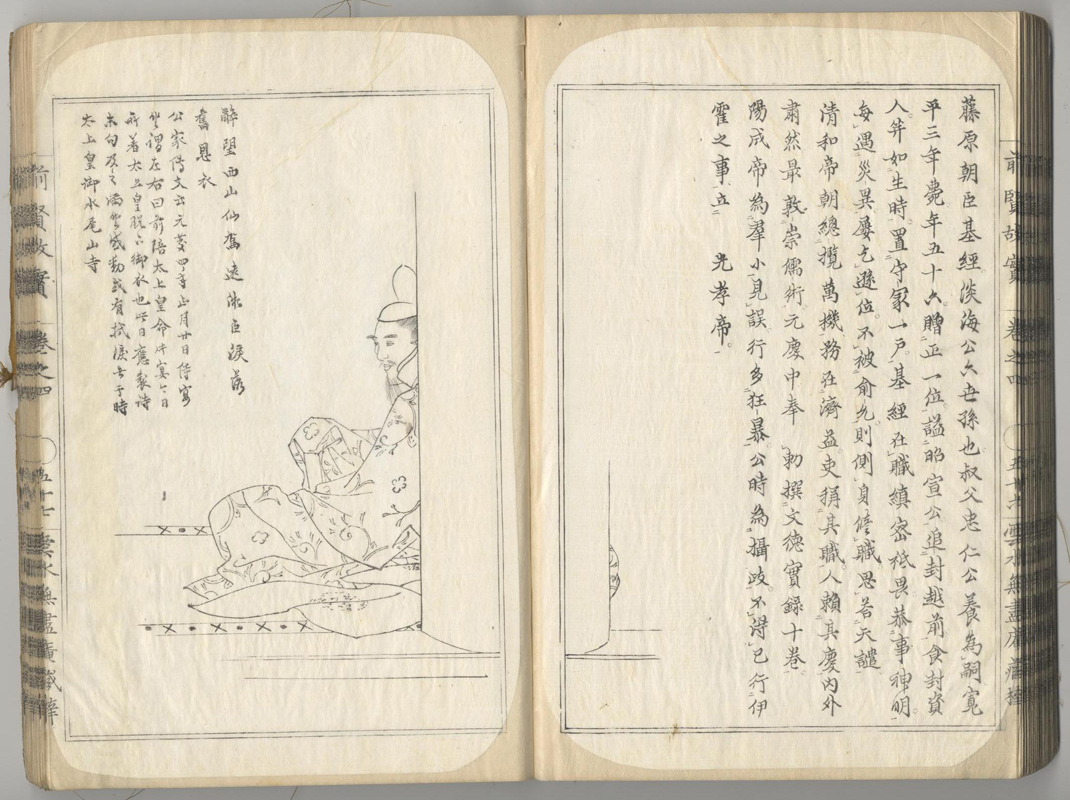 藤原朝臣基經淡海公六世孫也叔父忠仁公養為嗣寬
平三年薨年五十六贈正一位謚昭宣公追封越前食封資
人並如生時置守冢一戶基經在職縝密祗畏恭事神明
每遇災異屢乞遜位不被俞允則側身修職思若天譴
清和帝朝總攬萬機務在濟益吏稱其職人賴其慶內外
肅然最敦崇儒術元慶中奉 勅撰文德實錄十卷
陽成帝為羣小見誤行多狂暴公時為攝政不得已行伊
霍之事立 光孝帝
前賢故實 卷之四 五十六 雲水無盡庵藏梓
醉望西山仙駕遠微臣淚落
舊恩衣
公家傳文云元慶四年正月廿日侍宴
坐謂左右曰前陪太上皇命此宴今日
所着太上皇脫下御衣也此日應製詩
末句及之滿坐感動或有拭淚者于時
太上皇御水尾山寺
前賢故實 卷之四 五十七 雲水無盡庵藏梓